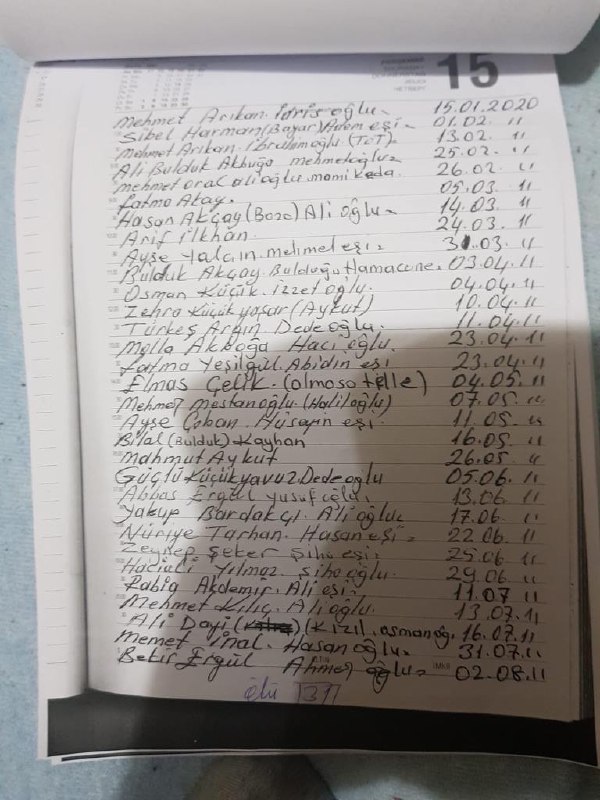 15
Mehmet Arıkan. İdris oğlu. 15.01.2020
Sibel Harman (Bayar) Adem eşi = 01.02. 11
Mehmet Arıkan ibrahimoğlu (TOT) = 13.02. 11
Ali Bulduk Akbuğa mehmetoğlu = 25.02. 11
mehmet oral alioğlu mami kada. 26.02. 11
Fatma Akay. 05.03. 11
Hasan Akçay (Bozo) Ali oğlu = 14.03. 11
Arif İlkhan. 24.03. 11
Ayşe Yalçın. mehmet eşi = 31.03. 11
Bulduk Akçay Bulduğu Hamacene. 03.04.11
Osman Küçük. izzet oğlu. 04.04.11
Zehra Küçükyaşar (Aykut) 10.04.11
Türkeş Argın Dedeoğlu. 11.04.11
Molla Akboğa Hacı oğlu. 23.04.11
Fatma Yeşilgül Abidin eşi 23.04.11
Elmas Çelik. (olmoso telle) 04.05.11
Mehmet Mestanoğlu. (Haliloğlu) 07.05. 11
Ayşe Çoban. Hüseyin eşi. 11.05. 11
Bilal (Bulduk) Kayhan 16.05. 11
Mahmut Aykut 26.05 11
Güçlü Küçükyavuz Dedeoğlu 05.06. 11
Abbas Ergül yusuf oğlu. 13.06. 11
Yakup Bardakçı Ali oğlu = 17.06. 11
Nuriye Tarhan. Hasan eşi = 22.06. 11
Zeynep Şeker Şıho eşi. 25.06 11
Yılmaz Şıhooğlu. 29.06 11
Rabia Akdemir. Ali eşi. 11.07 11
Mehmet Kılıç. Ali oğlu. 13.07.11
Ali Dayi (Kızıl. osmanoğ. 16.07.11
Memet İnal. Hasan oğlu = 31.07.11
Bekir Ergül Ahmet oğlu = 02.08.11
ölü 31